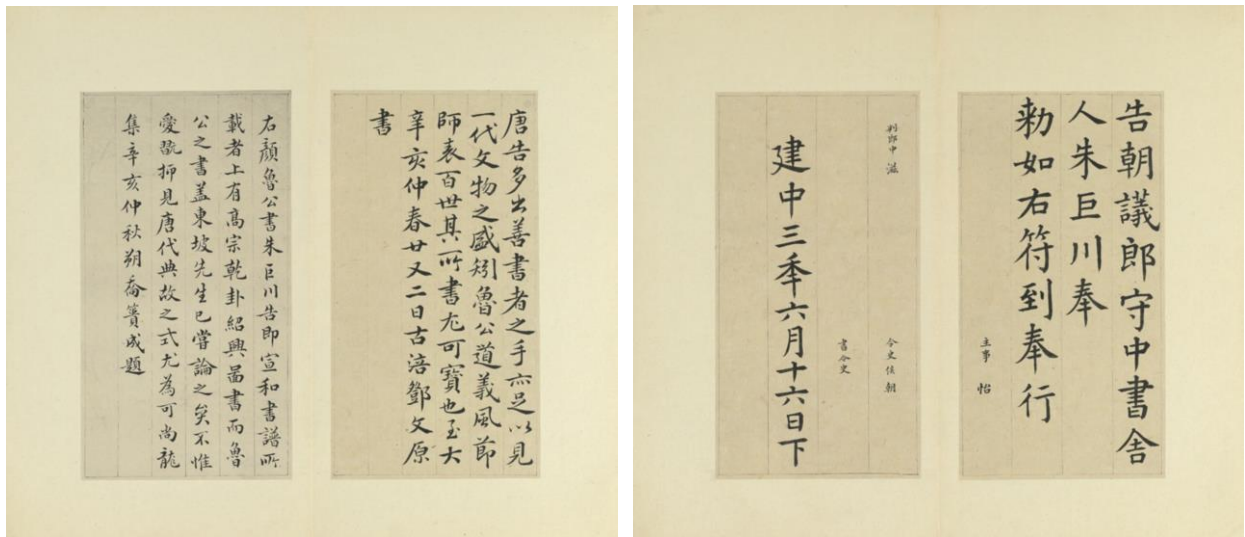 告朝議郎守中書舍
人朱巨川奉
勑如右符到奉行
主事 怡
判郎中 滋
令史 朝
書令史
建中三秊六月十六日下
唐告多出善書者之手亦足以見
一代文物之盛矧魯公道義風節
師表百世其所書尤可寶也至大
辛亥仲春廿又二日古涪鄧文原
書
右顏魯公書朱巨川告即宣和書譜所
載者上有高宗乾卦紹興啚書而魯
公之書盖東坡先生已嘗論之矣不惟
愛翫抑見唐代典故之式尤為可尚龍
集辛亥仲秋朔喬簣成題